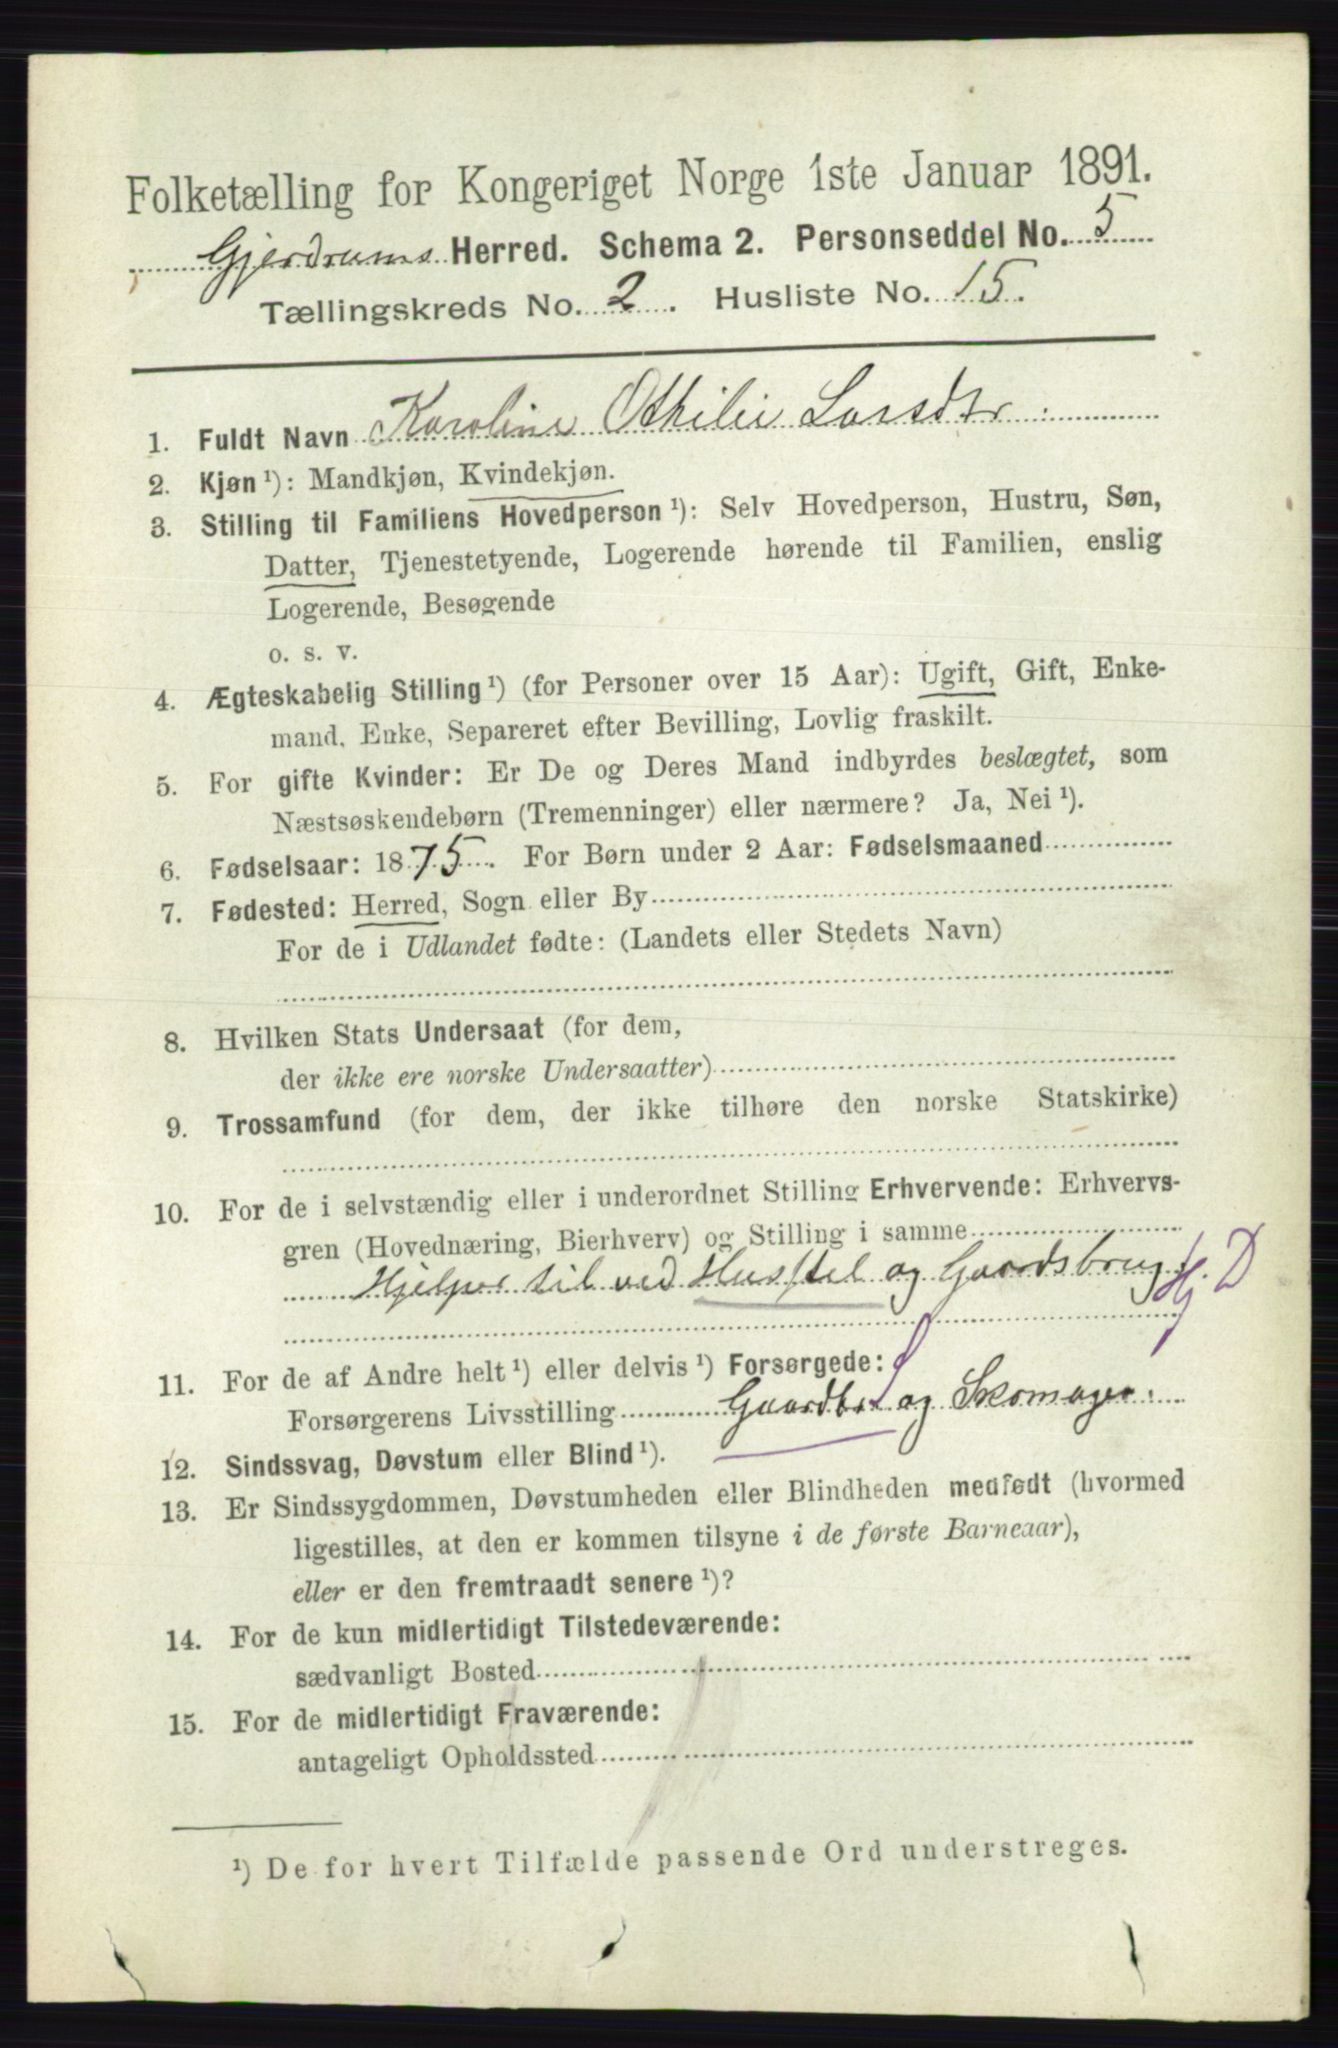 Folketælling for Kongeriget Norge 1ste Januar 1891.
Gjerdrums Herred. Schema 2. Personseddel No. 5
Tællingskreds No. 2. Husliste No. 15.
1. Fuldt Navn Karoline Othilie Larsdtr.
2. Kjøn ¹): Mandkjøn, Kvindekjøn.
3. Stilling til Familiens Hovedperson ¹): Selv Hovedperson, Hustru, Søn,
Datter, Tjenestetyende, Logerende hørende til Familien, enslig
Logerende, Besøgende
o. s. v.
4. Ægteskabelig Stilling ¹) (for Personer over 15 Aar): Ugift, Gift, Enke-
mand, Enke, Separeret efter Bevilling, Lovlig fraskilt.
5. For gifte Kvinder: Er De og Deres Mand indbyrdes beslægtet, som
Næstsøskendebørn (Tremenninger) eller nærmere? Ja, Nei ¹).
6. Fødselsaar: 1875. For Børn under 2 Aar: Fødselsmaaned
7. Fødested: Herred, Sogn eller By
For de i Udlandet fødte: (Landets eller Stedets Navn)
8. Hvilken Stats Undersaat (for dem,
der ikke ere norske Undersaatter)
9. Trossamfund (for dem, der ikke tilhøre den norske Statskirke)
10. For de i selvstændig eller i underordnet Stilling Erhvervende: Erhvervs-
gren (Hovednæring, Bierhverv) og Stilling i samme
Hjelper til ved Husstel og Gaardsbrug. Hj. D
11. For de af Andre helt ¹) eller delvis ¹) Forsørgede:
Forsørgerens Livsstilling Gaardbr. og Skomager.
12. Sindssvag, Døvstum eller Blind ¹).
13. Er Sindssygdommen, Døvstumheden eller Blindheden medfødt (hvormed
ligestilles, at den er kommen tilsyne i de første Barneaar),
eller er den fremtraadt senere ¹)?
14. For de kun midlertidigt Tilstedeværende:
sædvanligt Bosted
15. For de midlertidigt Fraværende:
antageligt Opholdssted
¹) De for hvert Tilfælde passende Ord understreges.